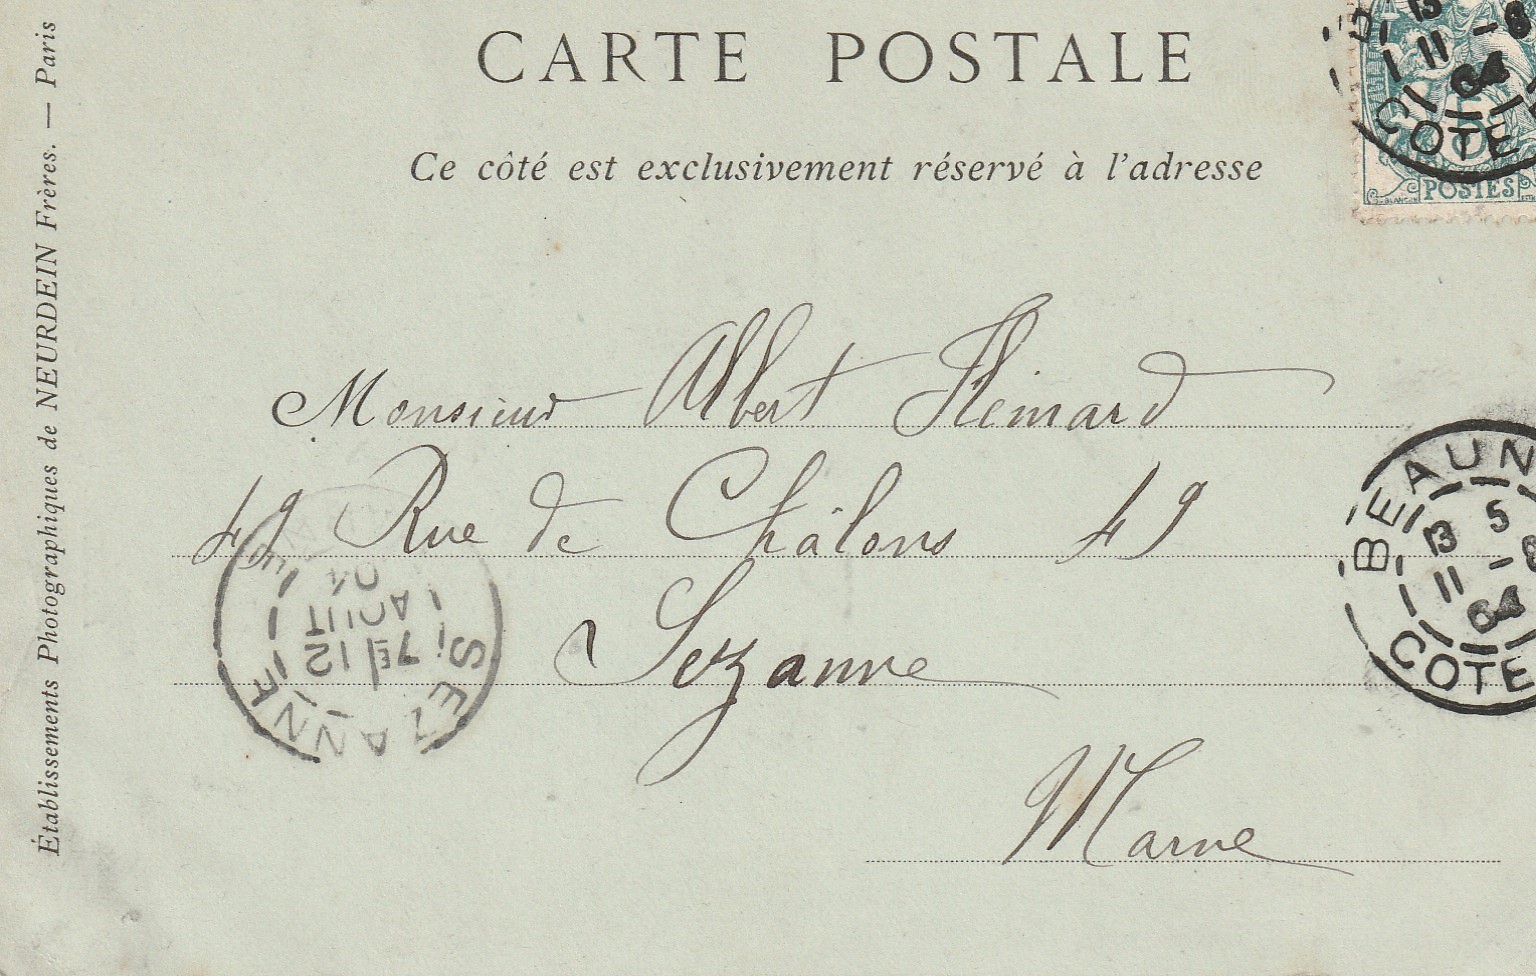 CARTE POSTALE
Ce côté est exclusivement réservé à l'adresse
Établissements Photographiques de NEURDEIN Frères. — Paris
13
11 -8
04
COTE
5
POSTES
Monsieur Albert Hémard
49 Rue de Châlons 49
à Sézanne
Marne
BEAUN
5
13
11 -8
04
COTE
SEZANNE
7E 12
AOUT
04